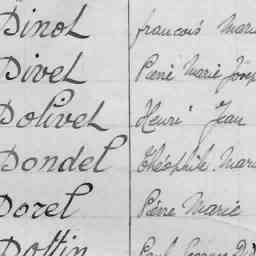 Dinot françois Marie
Divet Pierre Marie Josep
Dolivet Henri Jean
Dondel Théophile Marie
Dorel Pierre Marie
Dottin Paul